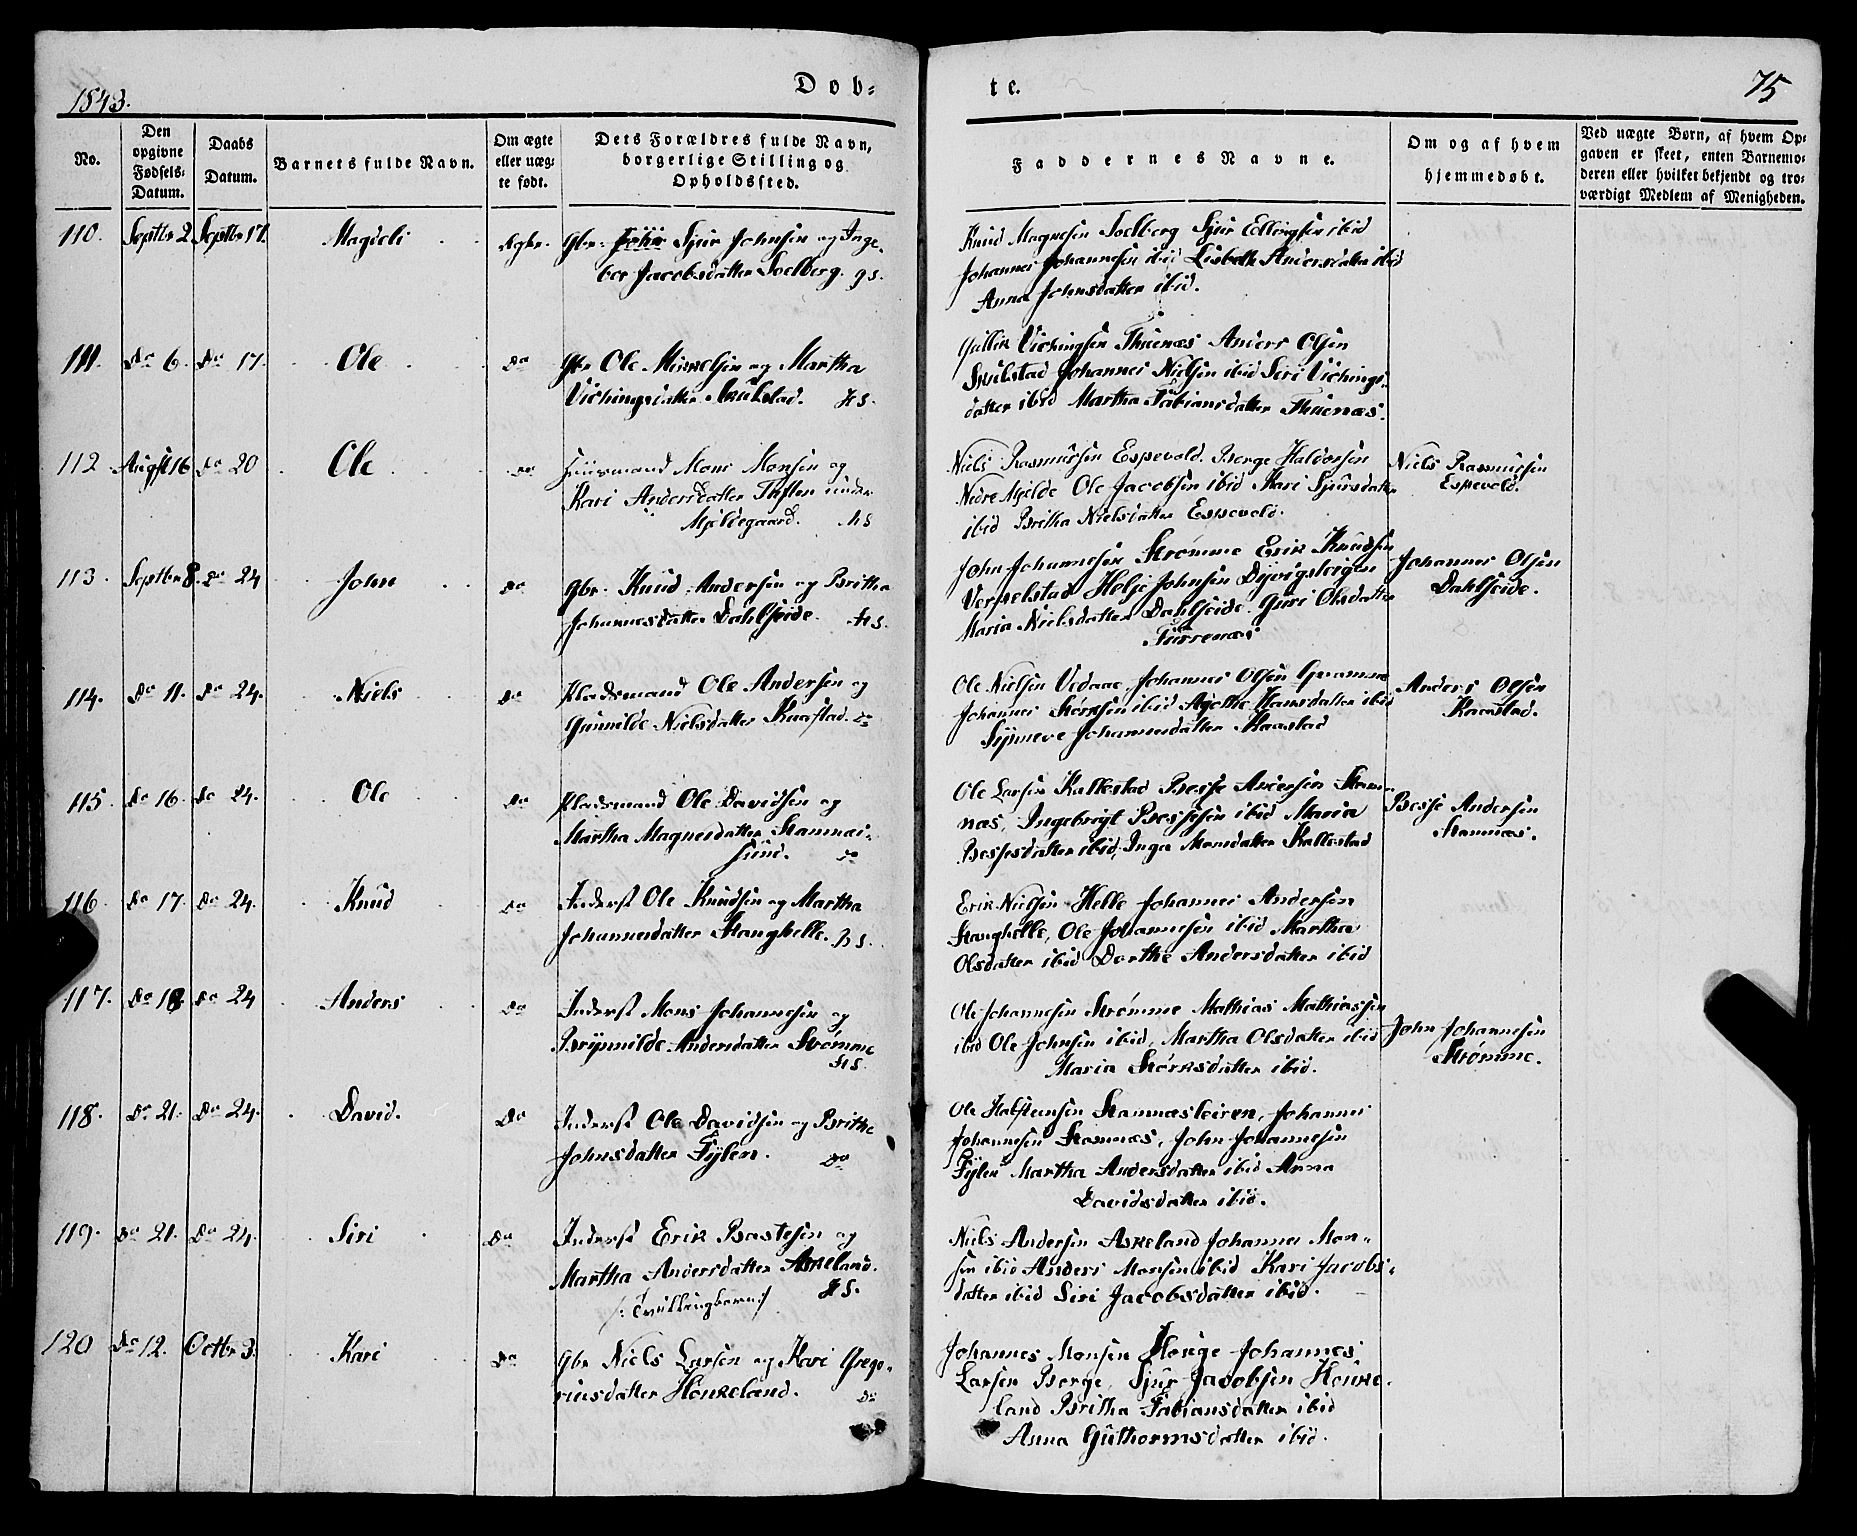 1843.
Dob-
te.
75
No.
Den opgivne Fødsels-Datum.
Daabs Datum.
Barnets fulde Navn.
Om ægte eller uæg-te født.
Dets Forældres fulde Navn, borgerlige Stilling og Opholdssted.
Faddernes Navne.
Om og af hvem hjemmedøbt.
Ved uægte Børn, af hvem Op-gaven er skeet, enten Barnemo-deren eller hvilket bekjendt og tro-værdigt Medlem af Menigheden.
110. Septbr 2 Septbr 17. Magdeli Gbr. Sjur Johnsen og Inge-
bor Jacobsdatter Soelberg.
Knud Magnesen Soelberg Sjur Ellingsen ibid
Johannes Johannesen ibid Lisbeth Andersdatter ibid
Anna Johnsdatter ibid.
111. Do 6. Do 17. Ole Do Gbr Ole Mikkelsen og Martha
Vichingsdatter Skulstad. HS.
Gullik Vichingsen Thuenæs Anders Olsen
Skulstad Johannes Nielsen ibid Siri Vichings-
datter ibid Martha Fabiansdatter Thuenæs.
112 Augst 16 Do 20 Ole Do Huusmand Mons Monsen og
Kari Andersdatter Toften under
Mjeldegaard. HS
Niels Rasmusen Espevold. Berge Haldorsen
Nedre Mjelde Ole Jacobsen ibid Kari Sjursdatter
ibid Britha Nielsdatter Espevold.
Niels Rasmusen
Espevold.
113 Septbr 8. Do 24 John Do Gbr. Knud Andersen og Britha
Johannesdatter Dahlseide. HS.
John Johannesen Strømme Erik Knudsen
Verpelstad Helje Johnsen Dyvigsleigen
Maria Nielsdatter Dahlseide. Guri Olsdatter
Furrenæs
Johannes Olsen
Dahlseide.
114. Do 11. Do 24. Niels Do Pladsmand Ole Andersen og
Gunnilde Nielsdatter Knafstad. Do
Ole Nielsen Vedaae. Johannes Olsen
Johannes Størksen ibid Agothe Hansdatter ibid
Synneve Johannesdatter
Anders Olsen
115 Do 16. Do 24. Ole Do Pladsmand Ole Davidsen og
Martha Magnesdatter Stamnæs-
sund. Do
Ole Larsen Kallestad Besse Andersen Stam-
næs, Ingebrigt Bessesen ibid Maria
Bessesdatter ibid, Inga Monsdatter Kallestad
Besse Andersen
Stamnæs.
116 Do 17. Do 24. Knud Do Inderst Ole Knudsen og Martha
Johannesdatter Stanghelle.
Erik Nielsen Helle Johannes Andersen
Stanghelle, Ole Johannesen ibid Martha
Olsdatter ibid Dorthe Andersdatter ibid
117. Do 18 Do 24 Anders Do Inderst Mons Johannesen og
Brynnilde Andersdatter Strømme
HS.
Ole Johannesen Strømme Mathias Mathiassen
ibid Ole Johnsen ibid, Martha Olsdatter ibid
Maria Størksdatter ibid.
John Johannesen
Strømme.
118. Do 21. Do 24. David. Do Inderst Ole Davidsen og Brithe
Johnsdatter Fylen. Do
Ole Halsteinsen Stamnæsleiren, Johannes
Johannesen Stamnæs, John Johannesen
Fylen Martha Andersdatter ibid Anna
Davidsdatter ibid.
119. Do 21. Do 24. Siri Do Inderst Erik Bastesen og
Martha Andersdatter Askeland.
/: Tvillingbørn :/ HS.
Niels Andersen Askeland Johannes Mon-
sen ibid Anders Monsen ibid Kari Jacobs-
datter ibid Siri Jacobsdatter ibid.
120 Do 12. Octbr 3. Kari Do Gbr Niels Larsen og Kari Grego-
riusdatter Houkeland. Do
Johannes Monsen Houge Johannes
Larsen Berge, Sjur Jacobsen Houke-
land Britha Fabiansdatter ibid
Anna Guthormsdatter ibid.